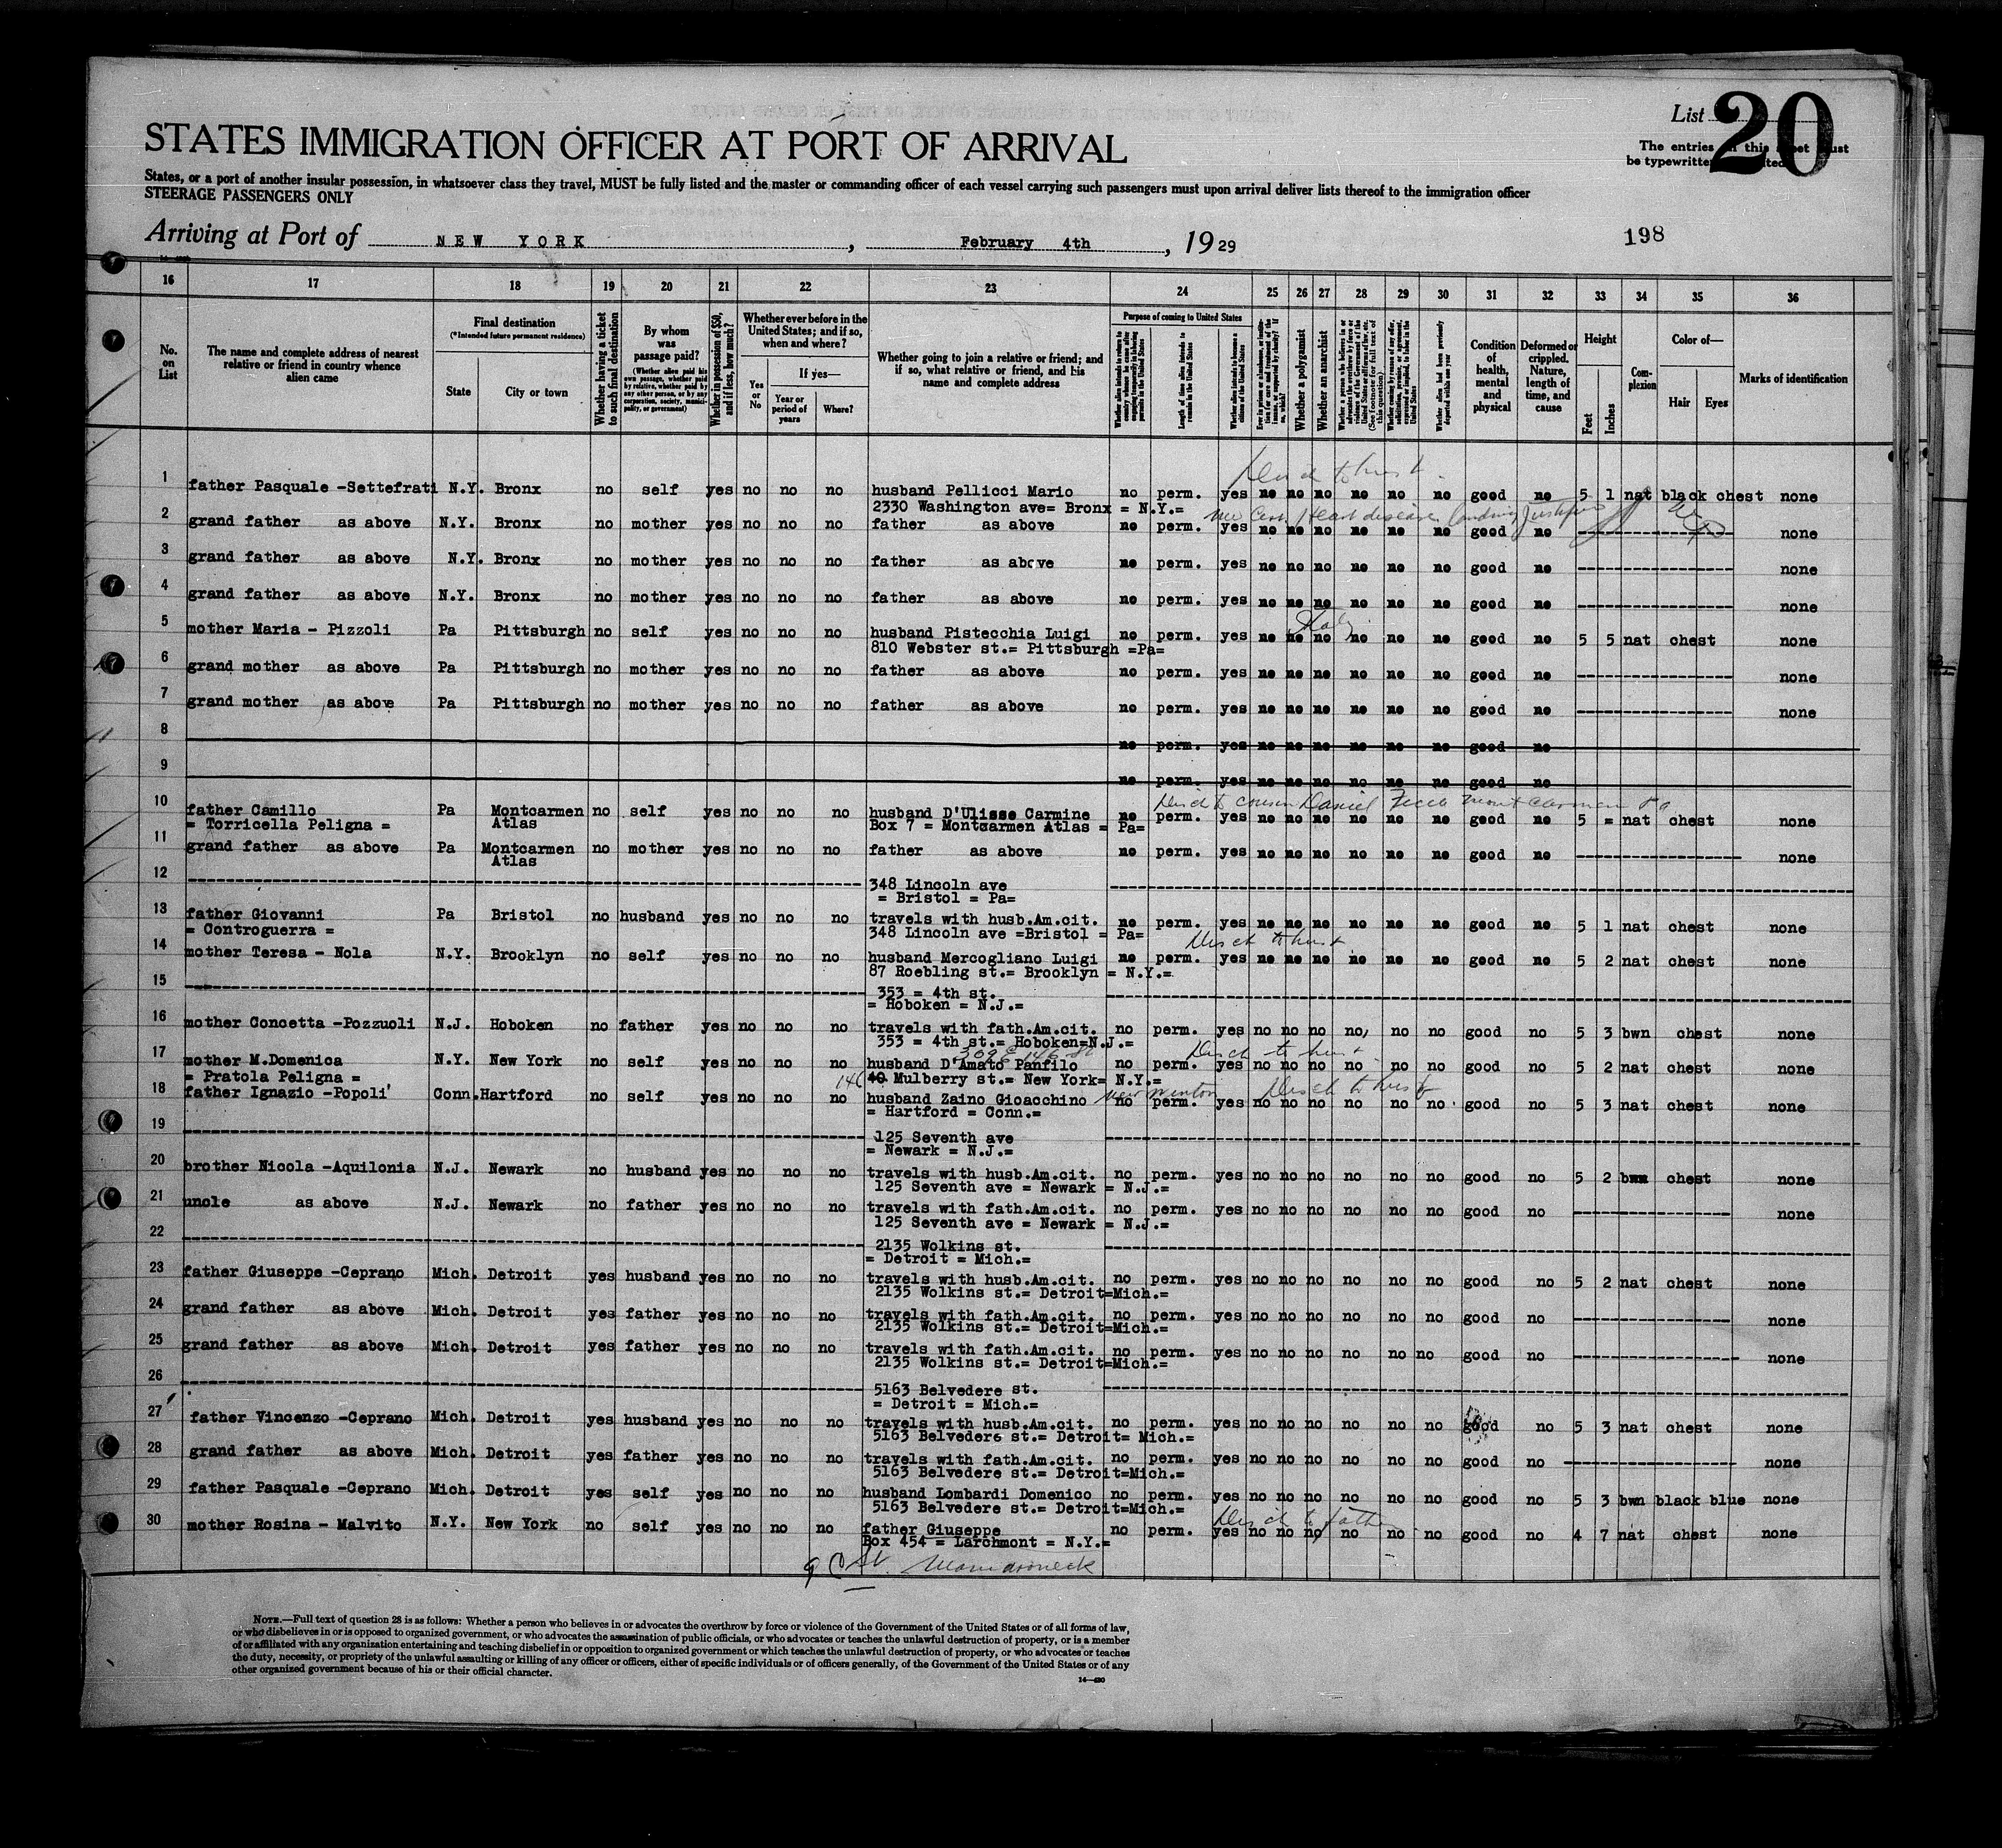 List 20
STATES IMMIGRATION OFFICER AT PORT OF ARRIVAL
The entries this sheet must
be typewritten
States, or a port of another insular possession, in whatsoever class they travel, MUST be fully listed and the master or commanding officer of each vessel carrying such passengers must upon arrival deliver lists thereof to the immigration officer
STEERAGE PASSENGERS ONLY
Arriving at Port of NEW YORK, February 4th, 1929
198
16 17 18 19 20 21 22 23 24 25 26 27 28 29 30 31 32 33 34 35 36
No. on List
The name and complete address of nearest relative or friend in country whence alien came
Final destination
(*Intended future permanent residence)
State
City or town
Whether having a ticket to such final destination
By whom was passage paid?
(Whether alien paid his own passage, whether paid by relative, whether paid by any other person, or by any corporation, society, municipality, or government)
Whether in possession of $50, and if less, how much?
Whether ever before in the United States; and if so, when and where?
Yes or No
If yes—
Year or period of years
Where?
Whether going to join a relative or friend; and if so, what relative or friend, and his name and complete address
Purpose of coming to United States
Length of time alien intends to remain in the United States
Whether alien intends to become a citizen of the United States
Whether a polygamist
Whether an anarchist
Condition of health, mental and physical
Deformed or crippled. Nature, length of time, and cause
Height
Feet
Inches
Complexion
Color of—
Hair
Eyes
Marks of identification
1 father Pasquale -Settefrati N.Y. Bronx no self yes no no no husband Pellicci Mario no perm. yes no no no no no no good no 5 1 nat black chest none
2330 Washington ave= Bronx = N.Y.=
2 grand father as above N.Y. Bronx no mother yes no no no father as above no perm. yes no no no no no no good no none
3 grand father as above N.Y. Bronx no mother yes no no no father as above no perm. yes no no no no no no good no none
4 grand father as above N.Y. Bronx no mother yes no no no father as above no perm. yes no no no no no no good no none
5 mother Maria - Pizzoli Pa Pittsburgh no self yes no no no husband Pistecchia Luigi no perm. yes no no no no no no good no 5 5 nat chest none
810 Webster st.= Pittsburgh =Pa=
6 grand mother as above Pa Pittsburgh no mother yes no no no father as above no perm. yes no no no no no no good no none
7 grand mother as above Pa Pittsburgh no mother yes no no no father as above no perm. yes no no no no no no good no none
8 no perm. yes no no no no no no good no
9 no perm. yes no no no no no no good no
10 father Camillo Pa Montcarmen no self yes no no no husband D'Ulisse Carmine no perm. yes no no no no no no good no 5 = nat chest none
= Torricella Peligna = Atlas Box 7 = Montcarmen Atlas = Pa=
11 grand father as above Pa Montcarmen no mother yes no no no father as above no perm. yes no no no no no no good no none
Atlas
12 348 Lincoln ave
= Bristol = Pa=
13 father Giovanni Pa Bristol no husband yes no no no travels with husb.Am.cit. no perm. yes no no no no no no good no 5 1 nat chest none
= Controguerra = 348 Lincoln ave =Bristol = Pa=
Disch to husb
14 mother Teresa - Nola N.Y. Brooklyn no self yes no no no husband Mercogliano Luigi no perm. yes no no no no no no good no 5 2 nat chest none
87 Roebling st.= Brooklyn = N.Y.=
15 353 = 4th st.
= Hoboken = N.J.=
16 mother Concetta -Pozzuoli N.J. Hoboken no father yes no no no travels with fath.Am.cit. no perm. yes no no no no no no good no 5 3 bwn chest none
353 = 4th st.= Hoboken=N.J.=
309 E 146 St
Disch to husb
17 mother M.Domenica N.Y. New York no self yes no no no husband D'Amato Panfilo no perm. yes no no no no no no good no 5 2 nat chest none
= Pratola Peligna = 40 Mulberry st.= New York= N.Y.=
Disch to husb
18 father Ignazio -Popoli' Conn. Hartford no self yes no no no husband Zaino Gioacchino no perm. yes no no no no no no good no 5 3 nat chest none
= Hartford = Conn.=
19 125 Seventh ave
= Newark = N.J.=
20 brother Nicola -Aquilonia N.J. Newark no husband yes no no no travels with husb.Am.cit. no perm. yes no no no no no no good no 5 2 bwn chest none
125 Seventh ave = Newark = N.J.=
21 uncle as above N.J. Newark no father yes no no no travels with fath.Am.cit. no perm. yes no no no no no no good no none
125 Seventh ave = Newark = N.J.=
22 2135 Wolkins st.
= Detroit = Mich.=
23 father Giuseppe -Ceprano Mich. Detroit yes husband yes no no no travels with husb.Am.cit. no perm. yes no no no no no no good no 5 2 nat chest none
2135 Wolkins st.= Detroit=Mich.=
24 grand father as above Mich. Detroit yes father yes no no no travels with fath.Am.cit. no perm. yes no no no no no no good no none
2135 Wolkins st.= Detroit=Mich.=
25 grand father as above Mich. Detroit yes father yes no no no travels with fath.Am.cit. no perm. yes no no no no no no good no none
2135 Wolkins st.= Detroit=Mich.=
26 5163 Belvedere st.
= Detroit = Mich.=
27 father Vincenzo -Ceprano Mich. Detroit yes husband yes no no no travels with husb.Am.cit. no perm. yes no no no no no no good no 5 3 nat chest none
5163 Belvedere st.= Detroit= Mich.=
28 grand father as above Mich. Detroit yes father yes no no no travels with fath.Am.cit. no perm. yes no no no no no no good no none
5163 Belvedere st.= Detroit=Mich.=
29 father Pasquale -Ceprano Mich. Detroit yes self yes no no no husband Lombardi Domenico no perm. yes no no no no no no good no 5 3 bwn black blue none
5163 Belvedere st.= Detroit=Mich.=
Disch to father
30 mother Rosina - Malvito N.Y. New York no self yes no no no father Giuseppe no perm. yes no no no no no no good no 4 7 nat chest none
Box 454 = Larchmont = N.Y.=
Mamaroneck
NOTE.—Full text of question 28 is as follows: Whether a person who believes in or advocates the overthrow by force or violence of the Government of the United States or of all forms of law,
or who disbelieves in or is opposed to organized government, or who advocates the assassination of public officials, or who advocates or teaches the unlawful destruction of property, or is a member
of or affiliated with any organization entertaining and teaching disbelief in or opposition to organized government or which teaches the unlawful destruction of property, or who advocates or teaches
the duty, necessity, or propriety of the unlawful assaulting or killing of any officer or officers, either of specific individuals or of officers generally, of the Government of the United States or of any
other organized government because of his or their official character.